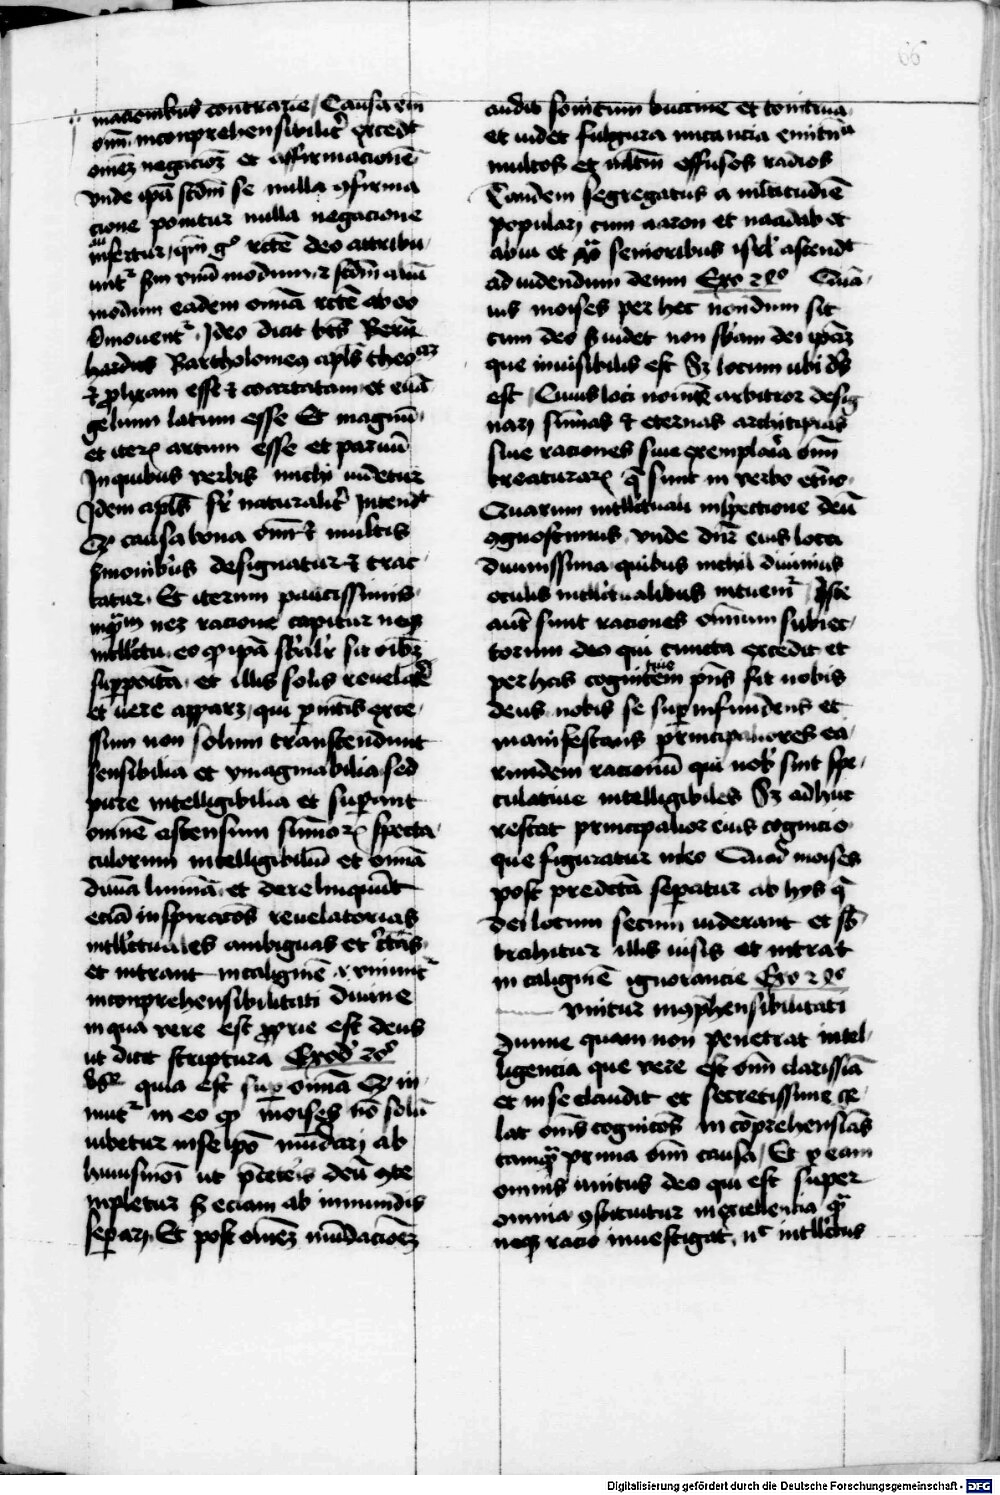 66
macionibus contrarie / Causa em̄
om̄ inconprehensibilit̾ excedt
omeʒ negacioʒ et affirmacionē
vnde ip̄a scdm se nulla ꝯfirma
cione ponitur nulla negacione
aufertur, qm̄ gͦ rcte deo attribu
unt̾ sm vnū modum, ⁊ scdm aliū
modum eadem omīa rcte ab eo
remouent̾. Ideo dicit bts Bern
hardus Bartholomeꝯ apl̄s theo
⁊ coartatam et euā
gelium latum esse Et magnū
et iteꝝ artum esse et paruū
In quibus verbis michi videtur
Idem apl̄s sr̄ naturalit̾ intendt
Qꝫ causa bona om̄ ē multis
sermonibus designatur ⁊ trac
tatur. Et iterum paucissimis
neʒ racione capitur neqꝫ
intllctu. eo ꝙ ip̄a sit oībꝫ
sup̱poīta et illis solis reuelat̾
et uere apparʒ, qui exce
ssum non solum transcendunt
sensibilia et ymaginabilia sed
pure intelligibilia et superant
omnē ascensum sūmoꝝ specta
culorum intelligibiliū et omīa
diuīa lumīa et derelinquūt
eciā inspiratōs reuelatorias
intllctuales ambiguas et
et intrant in caliginē ⁊ vniunt̾
inconprehensibilitati diuine
in qua vere est ꝓprie est deus
ut dicit scriptura Exod̄ 20ͦ
quia est super omīa Qꝫ in
nuit̾ in eo ꝙ moises nō solū
iubetur in seipō mūdari ab
huiusmōi ut deū ꝯte
mpletur sꝫ eciam ab inmundis
separari. Et post omēʒ mūdacioēʒ
audit sonitum buccine et tonitrua
et uidet fulgura micancia emitn̄
multos et multm̄ effusos radios
Tandem segregatus a multitudīe
populari cum aaron et naadab et
abiu et senioribus isrl̄ ascendt
ad uidendum deum Exo 24ͦ Quā
uis moises per hec nondum sit
cum deo sꝫ uidet non sb̄am dei ip̄aʒ
que inuisibilis est Sꝫ locum ubi ds̄
est, Cuius loci noīe arbitror desig
nari sūmas ⁊ eternas architipias
siue raciones siue exemplaria om̄
creaturaꝝ q̄ sunt in verbo etn̄o
Quarum intllctuali inspectione deū
ꝯgnoscimus vnde dn̄r eius loca
diuinissima quibus nichil diuinius
oculis intllctualibus intuem̾, Iste
aūt sunt raciones omnium subiec
torum deo qui cuncta excedit et
per has cognitōem pn̄s fit nobis
deus nobis se superinfundens et
manifestans principaliores ea
rundem racionū qui nob̾ sint spe
culatiue intelligibiles Sꝫ adhuc
restat principalior eius cognicio
que figuratur in eo Quod moises
post predcta sep̱atur ab hys q̄
dei locum secum uiderant et sb̄
trahitur illis uisis et intrat
in caliginē ignorancie Exo 20ͦ
vnitur inꝯphensibilitati
diuine quam non penetrat intel
ligencia que vere est om̄ clarissīa
et in se claudit et secretissime ce
lat om̄s cognicōs in cōprehensiōs
tamqꝫ prima om̄ causa, Et ꝑ eam
omnis unitus deo qui est super
omnia ꝯstituitur in excellencia q̄
neqꝫ racio inuestigat, nͨ intllctus
Digitalisierung gefördert durch die Deutsche Forschungsgemeinschaft - DFG